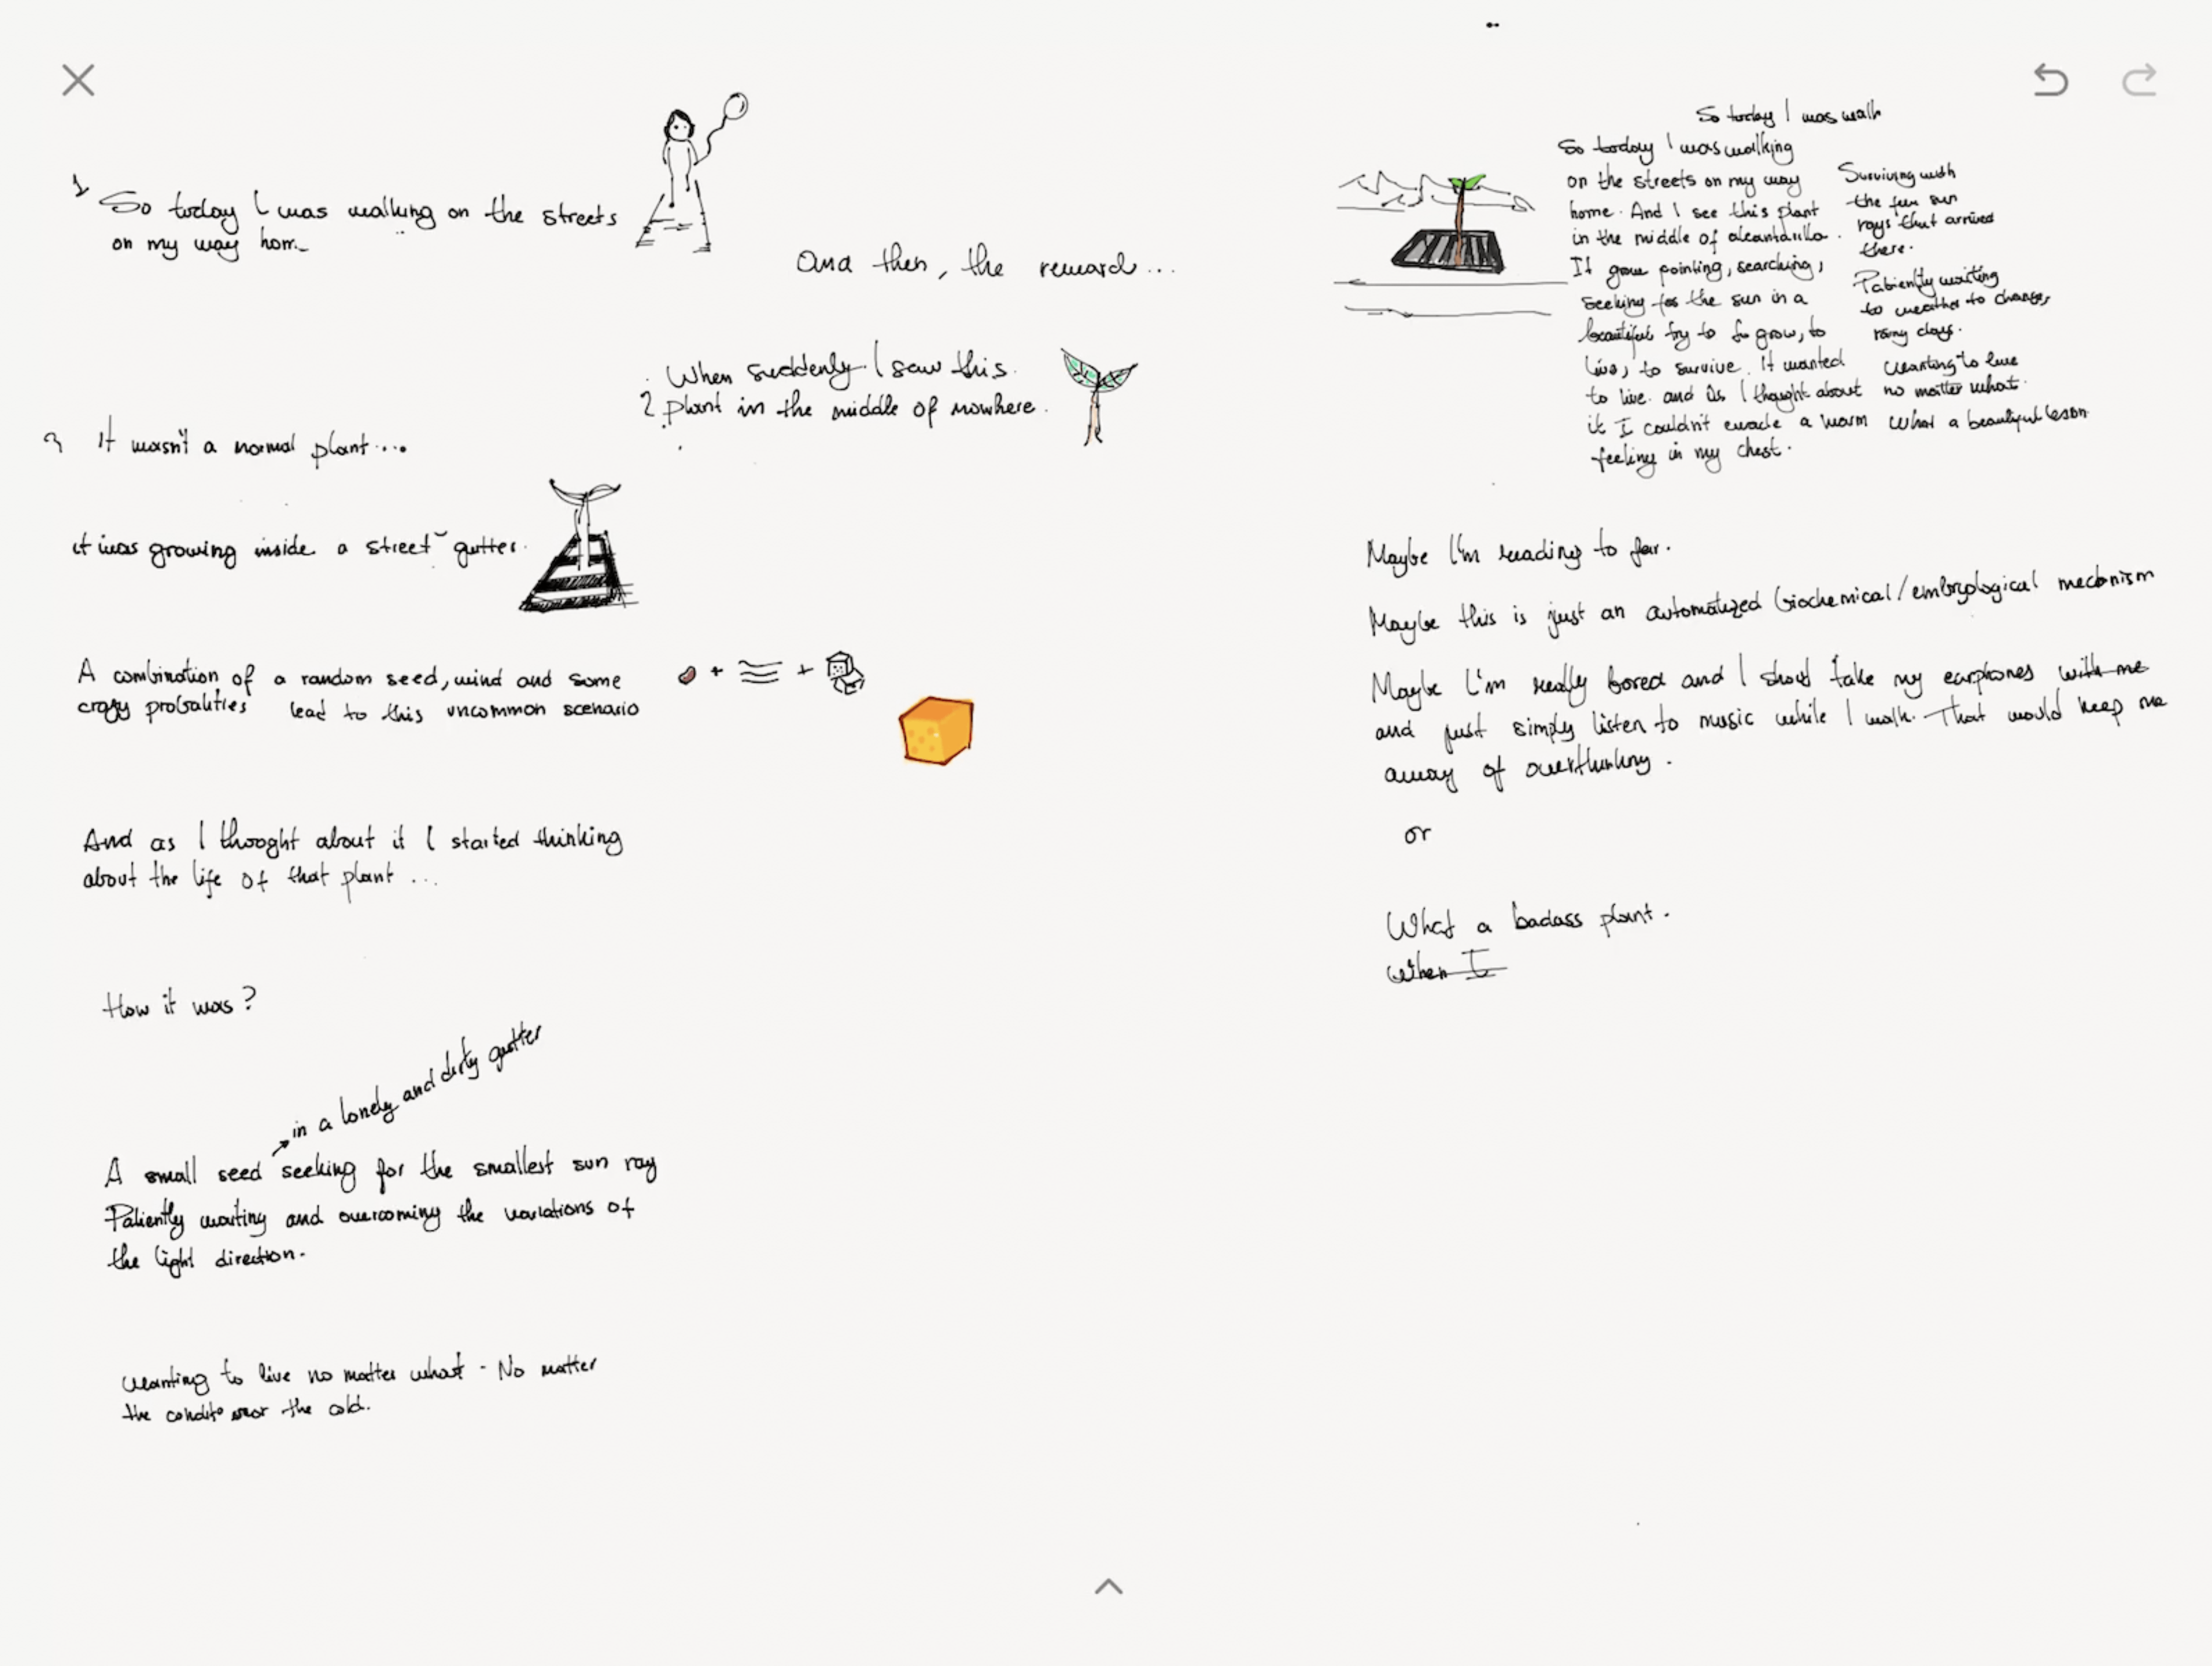 1 So today I was walking on the streets
on my way hom
And then, the reward...
When suddenly I saw this
2 plant in the middle of nowhere.
3 It wasn't a normal plant....
it was growing inside a street gutter.
A combination of a random seed, wind and some
crazy probalities lead to this uncommon scenario
+ +
And as I thooght about it I started thinking
about the life of that plant ...
How it was?
in a lonely and dirty gutter
A small seed seeking for the smallest sun ray
Patiently waiting and overcoming the variations of
the light direction.
wanting to live no matter what - No matter
the the cold.
So today I was walk
So today I was walking
on the streets on my way
home. And I see this plant
in the middle of alcantarilla.
It grow pointing, searching,
seeking for the sun in a
beautiful try to grow, to
live, to survive. It wanted
to live. and as I thought about
it I couldn't evade a warm
feeling in my chest.
Surviving with
the few sun
rays that arrived
there.
Patiently waiting
to weather to change,
rainy days.
wanting to live
no matter what.
What a beautiful lesson
Maybe I'm reading to far.
Maybe this is just an automatized biochemical/embryological mecanism
Maybe I'm really bored and I should take my earphones with me
and just simply listen to music while I walk. That would keep me
away of overthinking.
or
What a badass plant.
When I